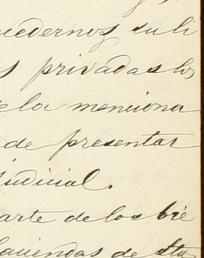 cuadernos, su li
s privadas los
ela menciona
de presentar
judicial.
arte de los bie
haciendas de Sta